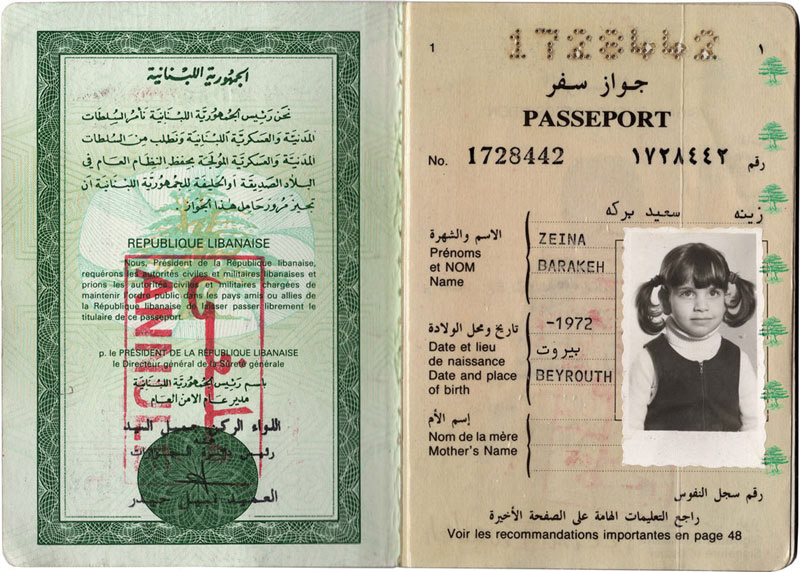 الجمهورية اللبنانية
نحن رئيس الجمهورية اللبنانية نأمر السلطات
المدنية والعسكرية اللبنانية ونطلب من السلطات
المدنية والعسكرية المولجة بحفظ النظام العام في
البلاد الصديقة أو الحليفة للجمهورية اللبنانية أن
تجيز مرور حامل هذا الجواز.
REPUBLIQUE LIBANAISE
Nous, Président de la République libanaise,
requérons les autorités civiles et militaires libanaises et
prions les autorités civiles et militaires chargées de
maintenir l'ordre public dans les pays amis ou alliés de
la République libanaise de laisser passer librement le
titulaire de ce passeport.
p. le PRÉSIDENT DE LA RÉPUBLIQUE LIBANAISE
le Directeur général de la Sûreté générale
باسم رئيس الجمهورية اللبنانية
مدير عام الامن العام
اللواء الركن جميل السيد
العميد نبيل حيدر
ANNULE
1 1728442 ١
جواز سفر
PASSEPORT
No. 1728442 ١٧٢٨٤٤٢ رقم
زينه سعيد بركه
الاسم والشهرة
Prénoms
et NOM
Name
ZEINA
BARAKEH
تاريخ ومحل الولادة
Date et lieu
de naissance
Date and place
of birth
-1972
بيروت
BEYROUTH
إسم الأم
Nom de la mère
Mother's Name
رقم سجل النفوس
راجع التعليمات الهامة على الصفحة الأخيرة
Voir les recommandations importantes en page 48